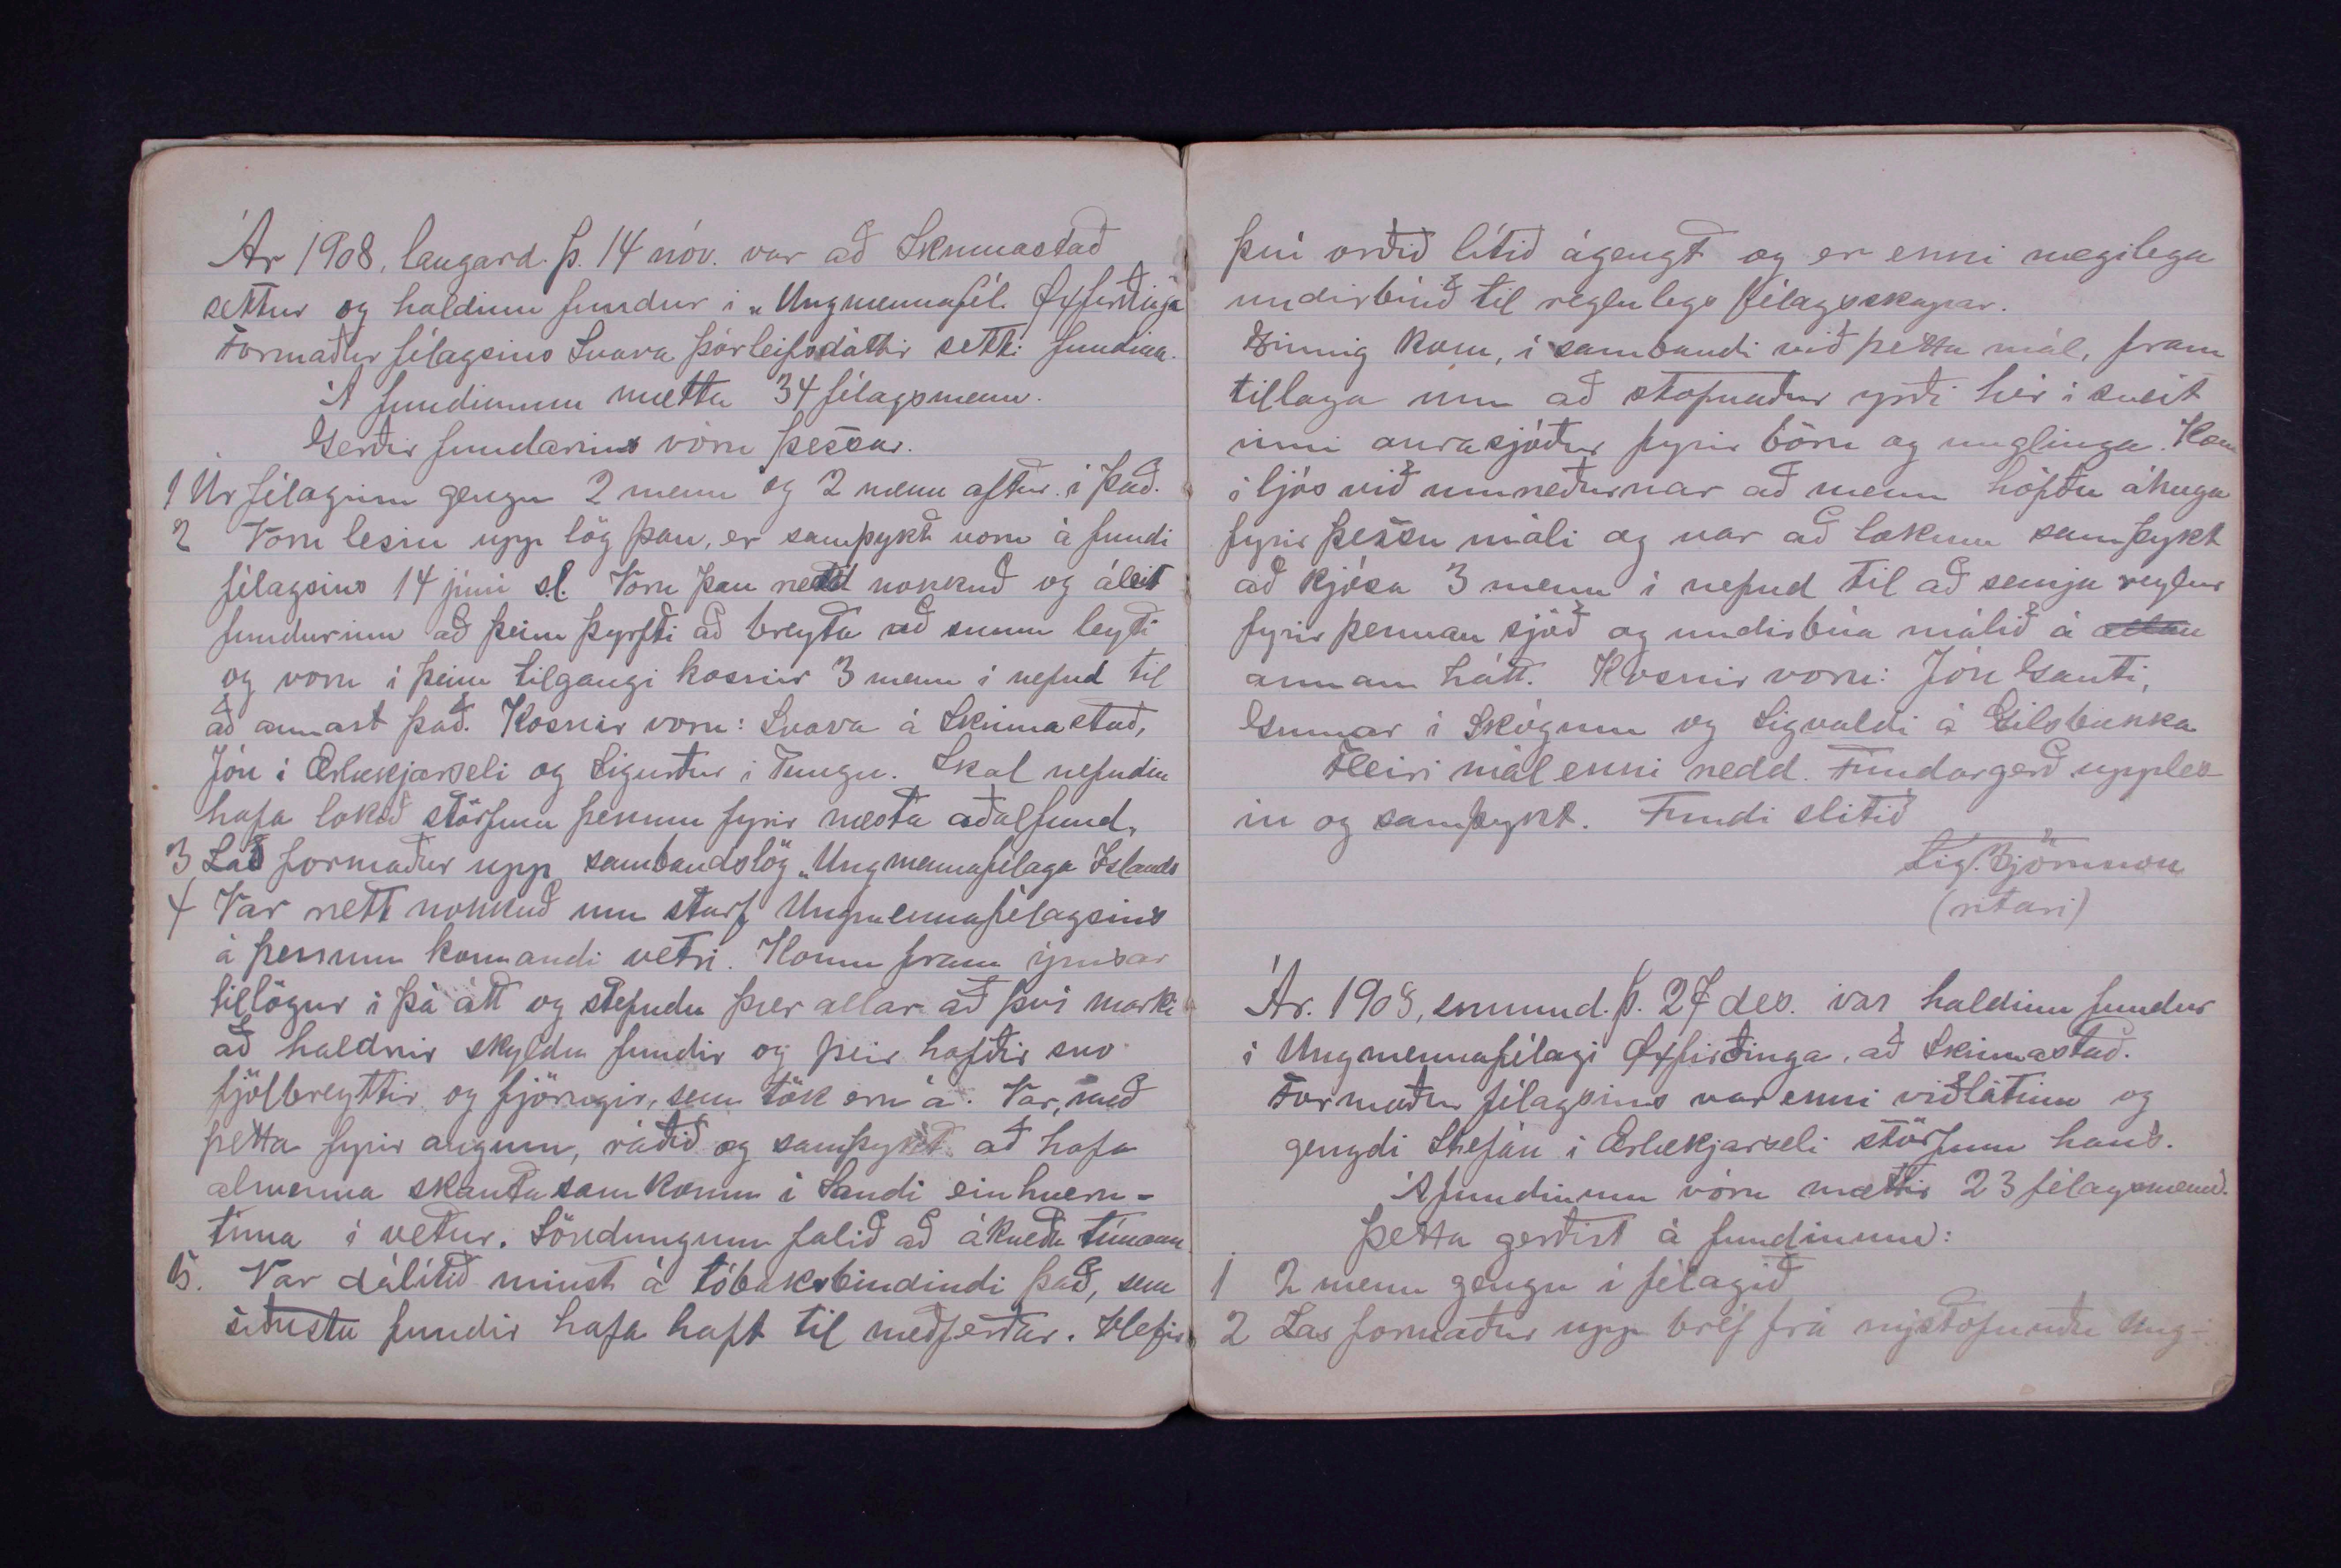 Ár 1908, laugard. þ. 14 nóv. var að Skinnastað
settur og haldinn fundur i „Ungmennafél. Öxfirðinga
Formaður félagsins Svava Þórleifsdóttir setti fundinn.
Á fundinum mættu 34 félagsmenn.
Gerðir fundarins vóru þessar.
1 Úr félaginu gengu 2 menn og 2 menn aftur i það.
2 Voru lesin upp lög þau, er samþykt voru á fundi
félagsins 14 júni sl. Voru þau rædd nokkuð og áleit
fundurinn að þeim þyrfti að breyta að sumu leyti
og voru i þeim tilgangi kosnir 3 menn i nefnd til
að annast það. Kosnir voru: Svava á Skinnastað,
Jón i Ærlækjarseli og Sigurður i Tungu. Skal nefndin
hafa lokið störfum þennum fyrir næsta aðalfund.
3 Las formaður upp sambandslög „Ungmennafélaga Íslands
4 Var rætt nokkuð um starf Ungmennafélagsins
á þessum komandi vetri. Komu fram ýmsar
tillögur i þá átt og stefndu þær allar að þvi marki
að haldnir skyldu fundir og þeir hafðir svo
fjölbreyttir og fjörugir, sem tök eru á. Var, með
þetta fyrir augum, ráðið og samþykt að hafa
almenna skautasamkomu i Sandi einhvern-
tima i vetur. Söndungum falið að ákveða timann.
5. Var dálítið minst á tóbaksbindindi það, sem
siðustu fundir hafa haft til meðferðar. Hefir
þvi orðið lítið ágengt og er enni nægilega
undirbúið til reglulegs félagsskapar.
Einnig kom, i sambandi við þetta mál, fram
tillaga um að stofnaður yrði hér i sveit
inni aurasjóður fyrir börn og unglinga. Kom
i ljós við umræðurnar að menn höfðu áhuga
fyrir þessu máli og var að lokum samþykt
að kjósa 3 menn i nefnd til að semja reglur
fyrir þennan sjóð og undirbúa málið á allan
annann hátt. Kosnir voru: Jón Gauti,
Gunnar i Skógum og Sigvaldi á Gilsbakka
Fleiri mál enni rædd. Fundargerð upples
in og samþykt. Fundi slitið
Sig. Björnsson
(ritari)
Ár. 1908, sunnud. þ. 27 des. var haldinn fundur
i Ungmennafélagi Öxfirðinga, að Skinnastað.
Formaður félagsins var enni viðlátinn og
gengdi Stefán i Ærlækjarseli störfum hans.
Á fundinum vóru mættir 23 félagsmenn.
Þetta gerðist á fundinum:
1 2 menn gengu i félagið
2 Las formaður upp bréf frá nýstofnuðu Ung-